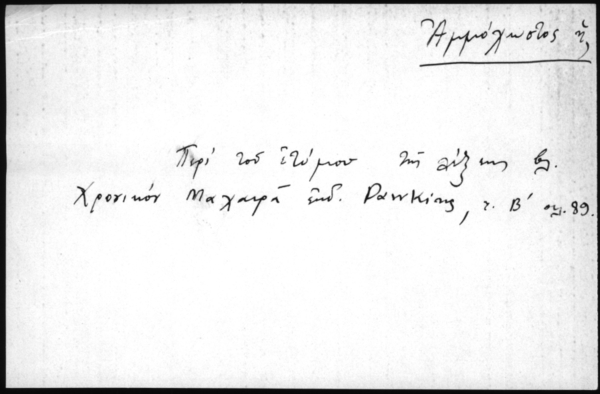 Ἀμμόχωστος ἡ
Περί τοῦ ἐτύμου τῆς λέξεως βλ.
Χρονικόν Μαχαιρᾶ ἔκδ. Dawkins, τ. Β' σελ. 89.